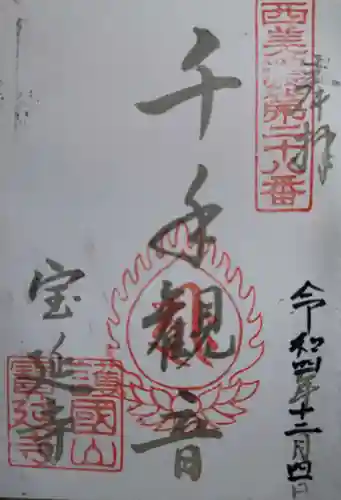 奉拝
西美濃第二十八番
令和四年十二月四日
千手観音
宝延寺
護国山
宝延寺